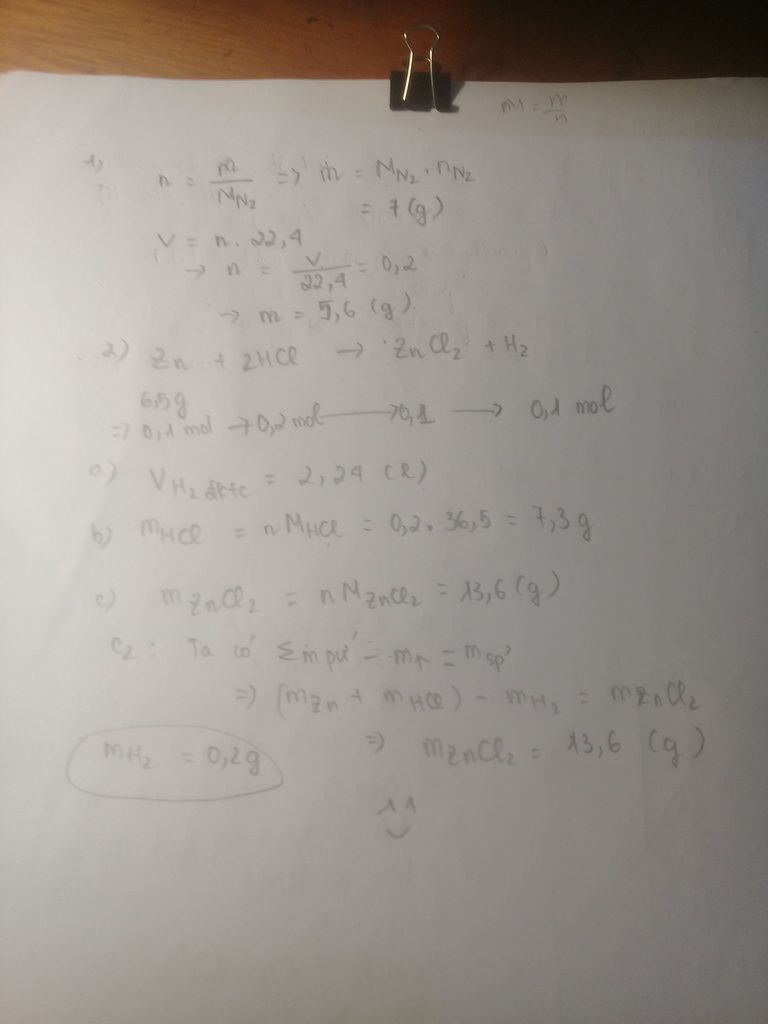 M = m/n
1)
n = m/M_N₂ => m = M_N₂ . n_N₂
= 7 (g)
V = n. 22,4
→ n = V/22,4 = 0,2
→ m = 5,6 (g)
2) Zn + 2HCl → ZnCl₂ + H₂
6,5g
=> 0,1 mol → 0,2 mol → 0,1 → 0,1 mol
a) V_H₂ đktc = 2,24 (l)
b) m_HCl = n M_HCl = 0,2. 36,5 = 7,3 g
c) m_ZnCl₂ = n M_ZnCl₂ = 13,6 (g)
C₂ : Ta có Σm pư - m↑ = m sp'
=> (m_Zn + m_HCl) - m_H₂ = m_ZnCl₂
m_H₂ = 0,2g => m_ZnCl₂ = 13,6 (g)